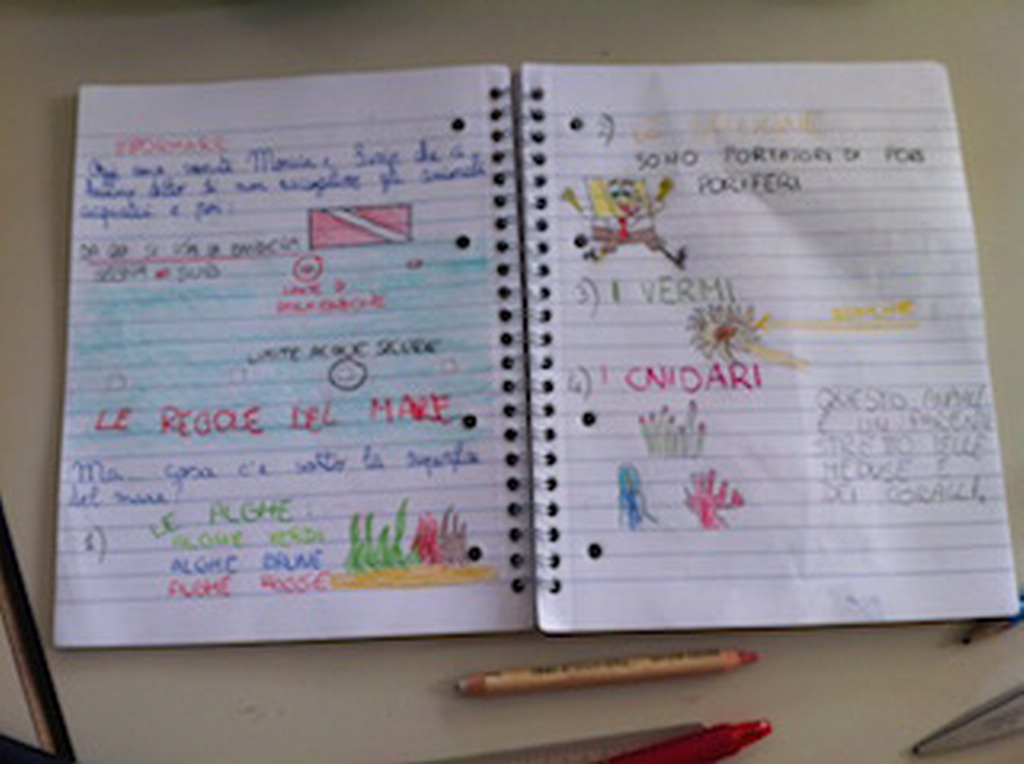 Oggi sono venuti Monica e che ci
hanno detto di non raccogliere gli animali
acquatici e poi:
DA QUI SI VEDE LA BANDIERA
SEGNA SUB
LIMITE DI
BALNEAZIONE
LIMITE ACQUE SICURE
LE REGOLE DEL MARE
Ma... cosa c'è sotto la superficie
del mare
1) LE ALGHE:
ALGHE VERDI
ALGHE BRUNE
ALGHE ROSSE
2) LE SPUGNE
SONO PORTATORI DI PORI
PORIFERI
3) I VERMI
4) I CNIDARI
QUESTO GRUPPO
È UN PARENTE
STRETTO DELLE
MEDUSE E
DEI CORALLI.